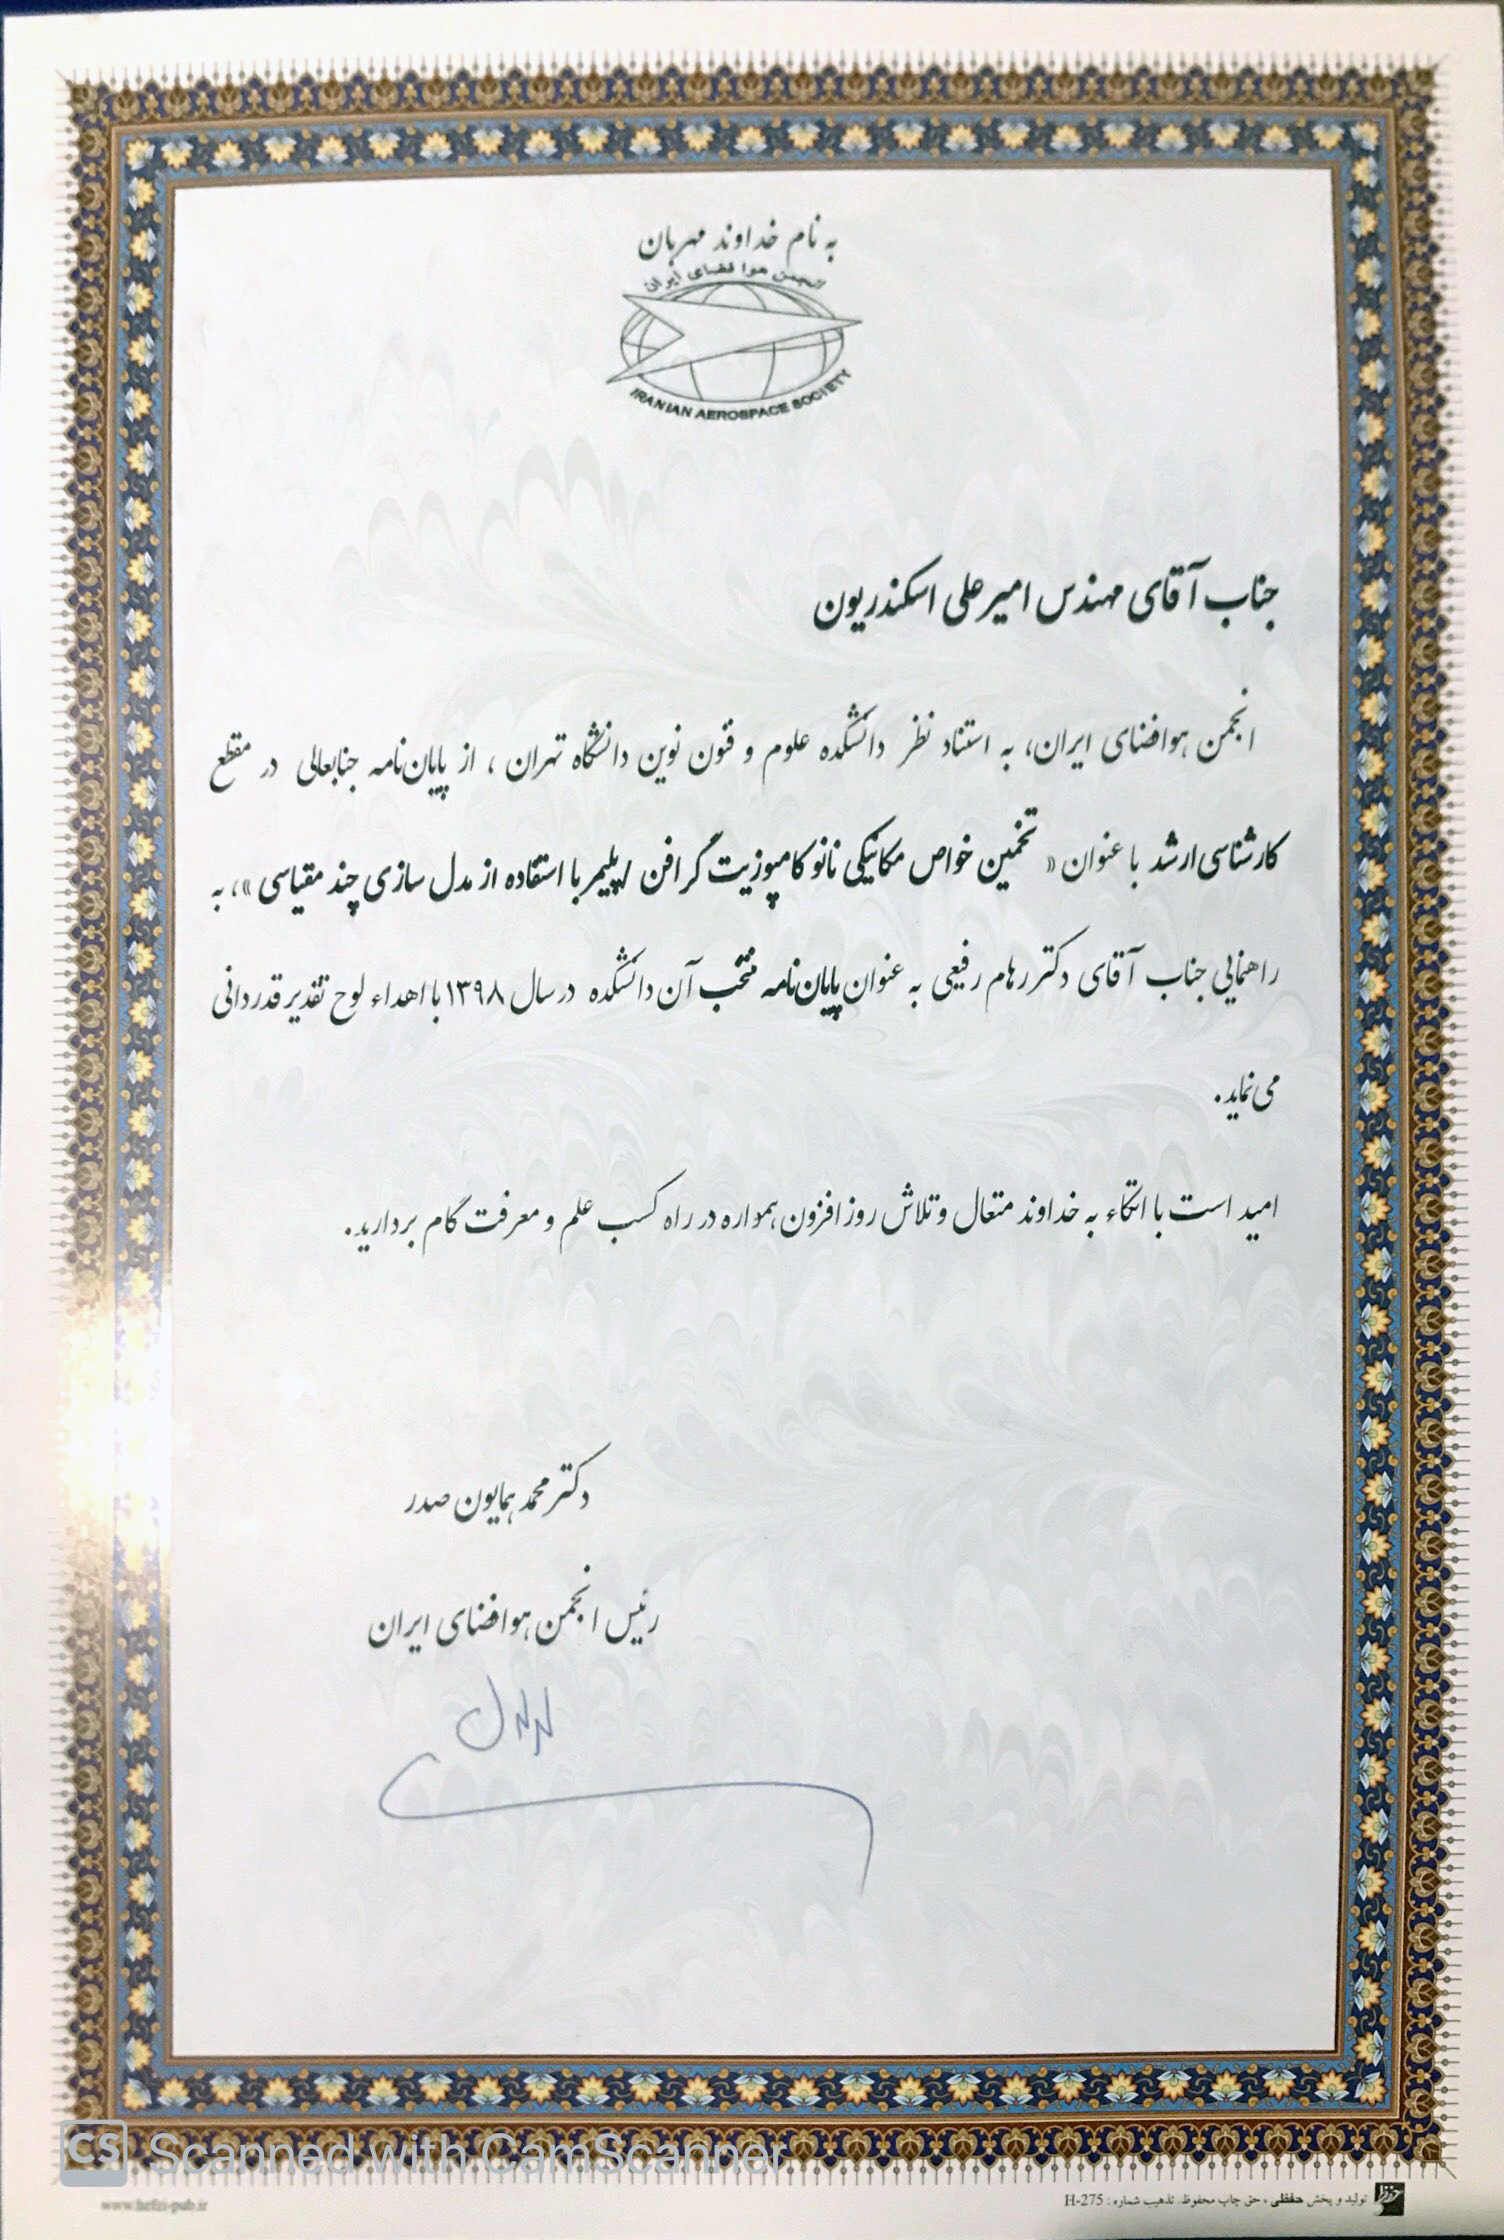 به نام خداوند مهربان
انجمن هوا فضای ایران
IRANIAN AEROSPACE SOCIETY
جناب آقای مهندس امیرعلی اسکندریون
انجمن هوافضای ایران، به استناد نظر دانشکده علوم و فنون نوین دانشگاه تهران ، از پایان‌نامه جنابعالی در مقطع
کارشناسی ارشد با عنوان « تخمین خواص مکانیکی نانو کامپوزیت گرافن /پلیمر با استفاده از مدل سازی چند مقیاسی »، به
راهنمایی جناب آقای دکتر رهام رفیعی به عنوان پایان‌نامه منتخب آن دانشکده در سال ۱۳۹۸ با اهداء لوح تقدیر قدردانی
می‌نماید.
امید است با اتکاء به خداوند متعال و تلاش روز افزون همواره در راه کسب علم و معرفت گام بردارید.
دکتر محمد همایون صدر
رئیس انجمن هوافضای ایران
CS Scanned with CamScanner
www.hefzi-pub.ir
حفظی تولید و پخش حفظی ، حق چاپ محفوظ. تذهیب شماره : H-275